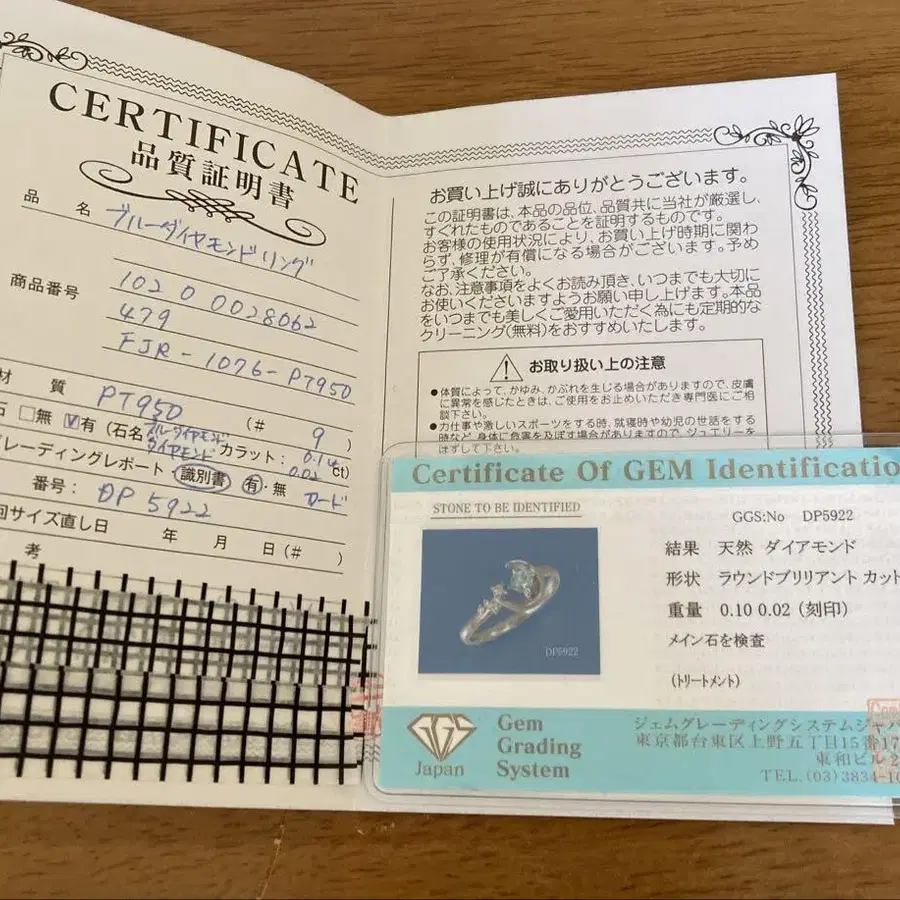 CERTIFICATE
品質証明書
品 名 ブルーダイヤモンドリング
商品番号 102 0 0028062
479
FJR-1076-PT950
材 質 PT950 (# 9 )
石 □無 ☑有 (石名 ブルーダイヤモンド ダイヤモンド カラット: 0.1 0.02 ct)
グレーディングレポート・識別書 有・無 カード
番号: DP 5922
回サイズ直し日 年 月 日(# )
考
お買い上げ誠にありがとうございます。
この証明書は、本品の品位、品質共に当社が厳選し、
すぐれたものであることを証明するものです。
お客様の使用状況により、お買い上げ時期に関わ
らず、修理が有償になる場合がございます。予め
ご了承ください。
なお、注意事項をよくお読み頂き、いつまでも大切に
お使いくださいますようお願い申し上げます。本品
をいつまでも美しくご愛用いただく為にも定期的な
クリーニング(無料)をおすすめいたします。
お取り扱い上の注意
●体質によって、かゆみ、かぶれを生じる場合がありますので、皮膚
に異常を感じたときは、ご使用をお止めいただき専門医にご相
談下さい。
●力仕事や激しいスポーツをする時、就寝時や幼児の世話をする
時など、身体に危害を及ぼす場合がありますので、ジュエリーを
はずして下さい。
Certificate Of GEM Identificatio
STONE TO BE IDENTIFIED
GGS:No DP5922
結果 天然 ダイアモンド
形状 ラウンドブリリアント カット
重量 0.10 0.02 (刻印)
メイン石を検査
(トリートメント)
DP5922
GGS
Japan
Gem
Grading
System
ジェムグレーディングシステムジャパ
東京都台東区上野五丁目15番17
東和ビル2
TEL.(03)3834-10